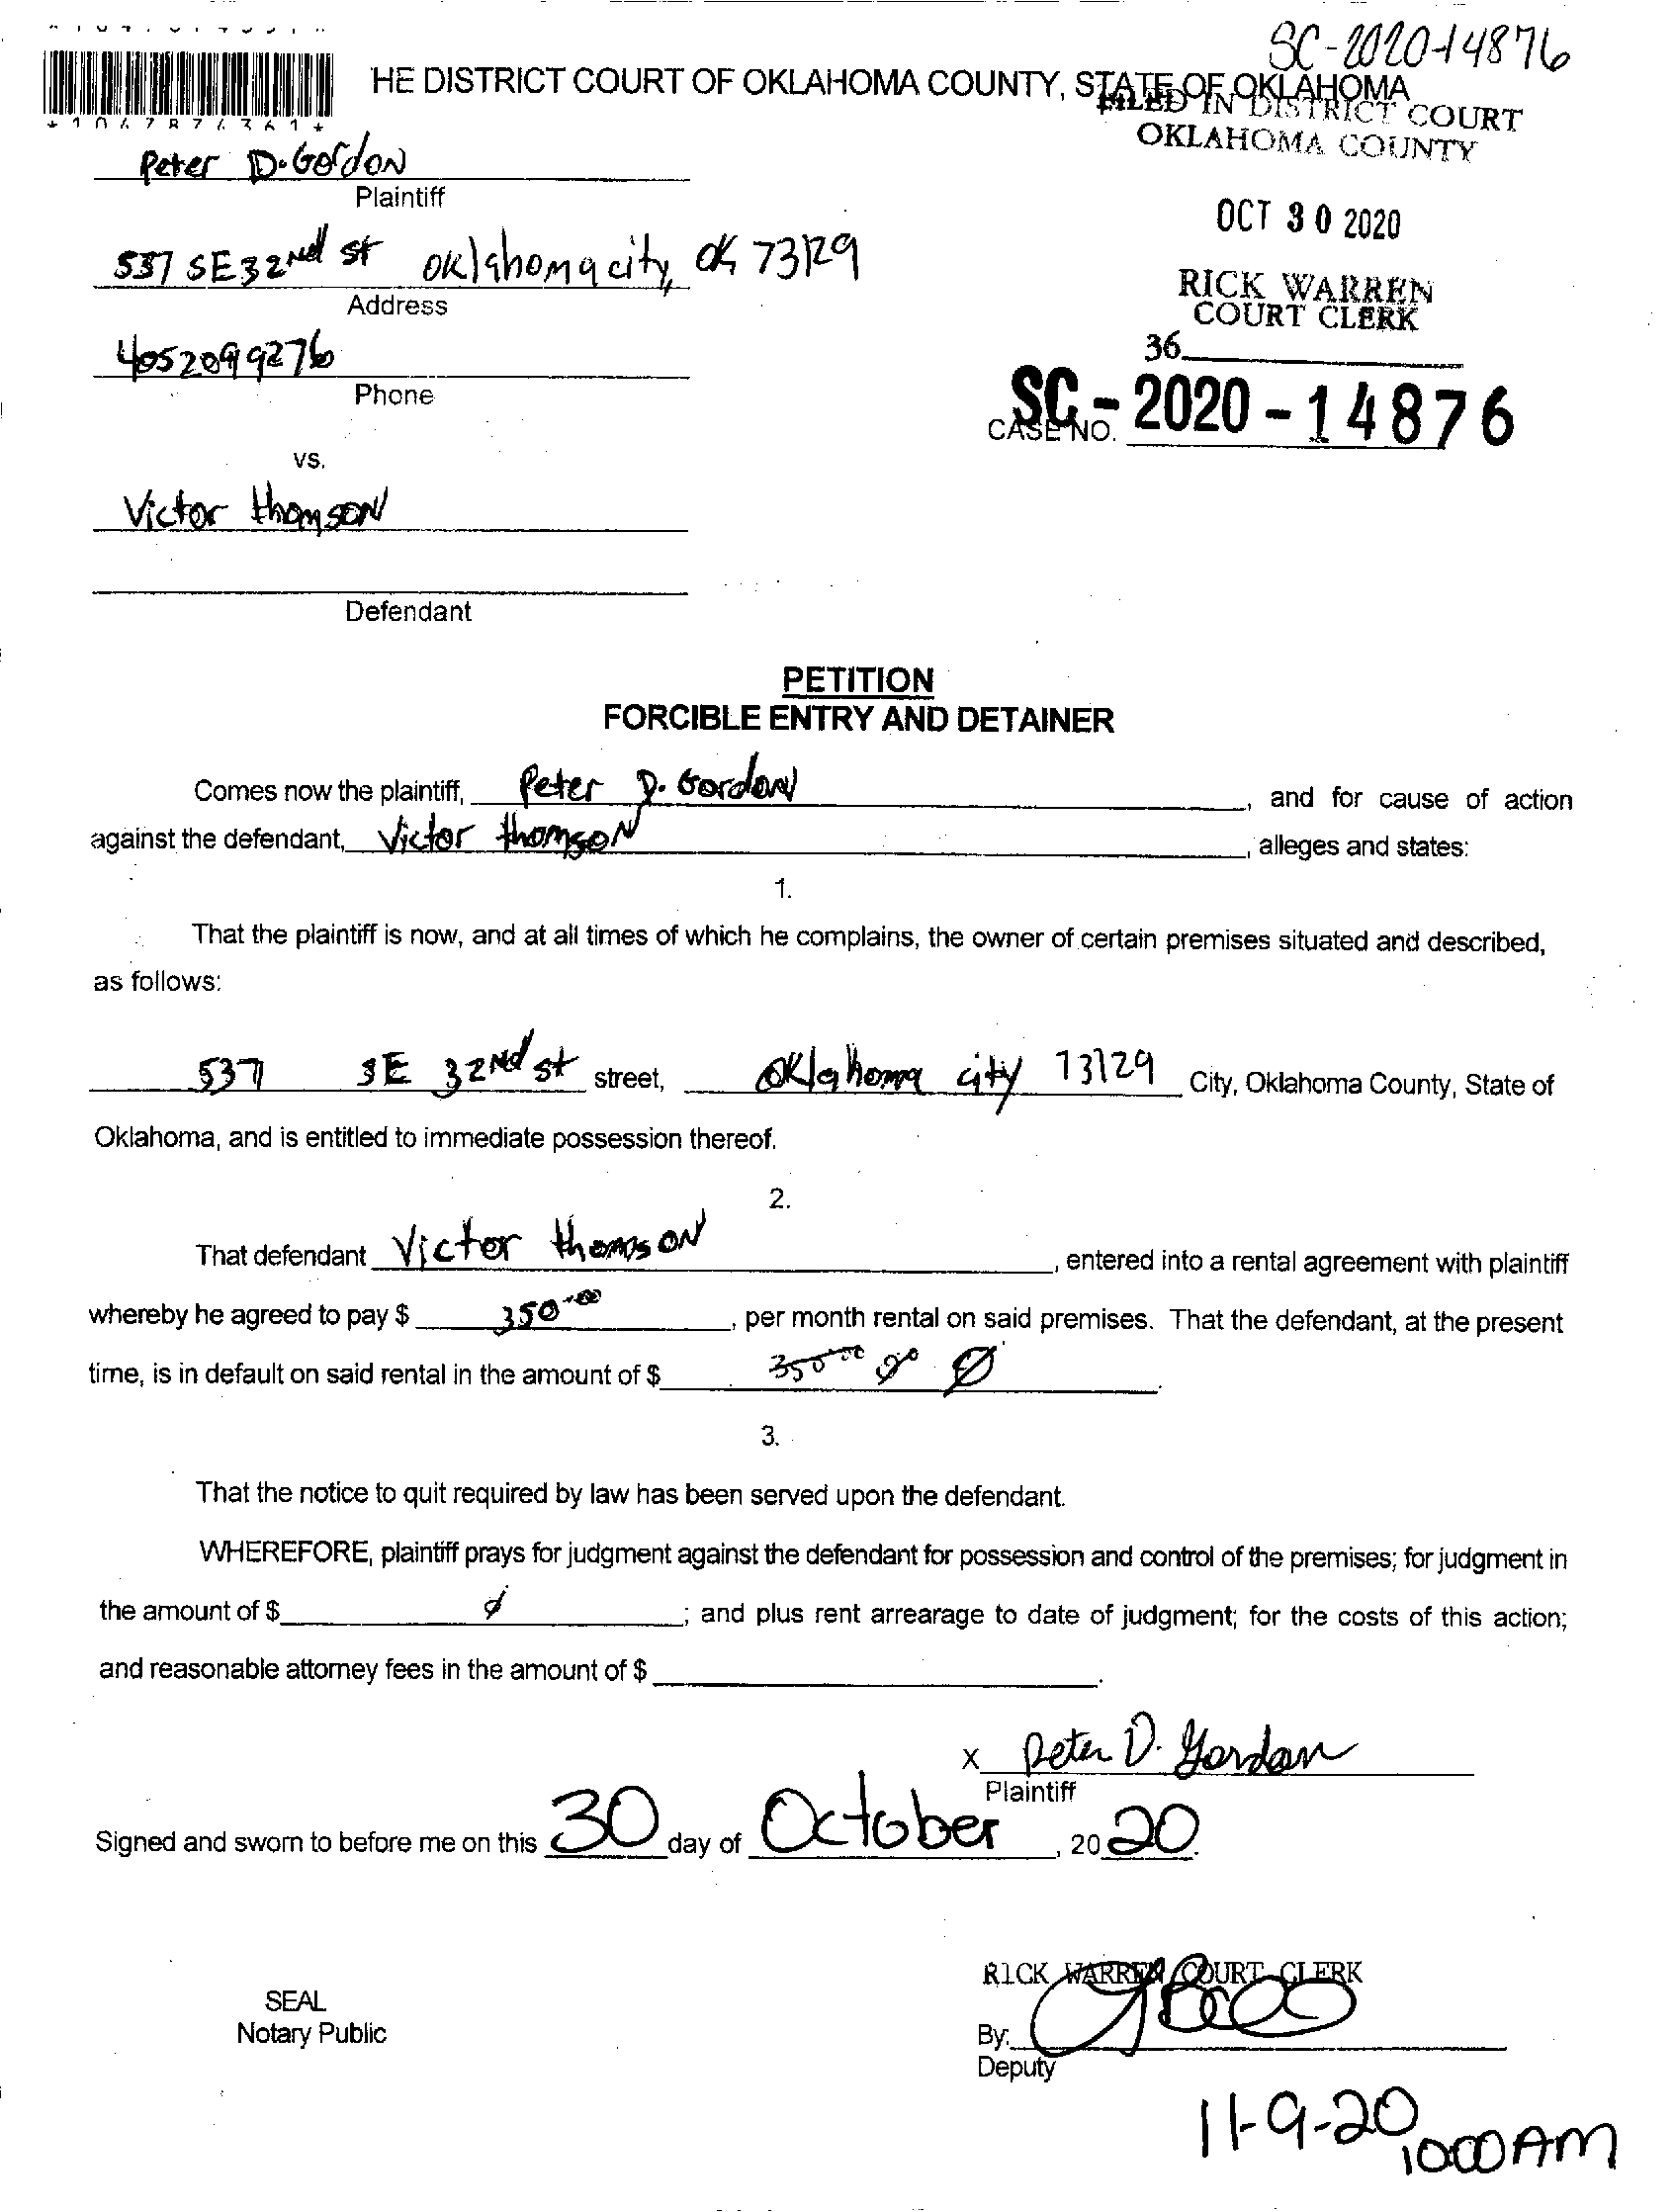 SC-2020-14876
HE DISTRICT COURT OF OKLAHOMA COUNTY, STATE OF OKLAHOMA
FILED IN DISTRICT COURT
OKLAHOMA COUNTY
Peter D. Gordon
Plaintiff
OCT 30 2020
537 SE 32nd st oklahoma city, ok 73129
Address
RICK WARREN
COURT CLERK
4052099276
Phone
36
CASE NO. SC - 2020 - 14876
vs.
Victor thomson
Defendant
PETITION
FORCIBLE ENTRY AND DETAINER
Comes now the plaintiff, Peter D. Gordon, and for cause of action
against the defendant, Victor thomson, alleges and states:
1.
That the plaintiff is now, and at all times of which he complains, the owner of certain premises situated and described,
as follows:
537 SE 32nd st street, oklahoma city 73129 City, Oklahoma County, State of
Oklahoma, and is entitled to immediate possession thereof.
2.
That defendant Victor thomson, entered into a rental agreement with plaintiff
whereby he agreed to pay $ 350.00, per month rental on said premises. That the defendant, at the present
time, is in default on said rental in the amount of $ 350 00 Ø.
3.
That the notice to quit required by law has been served upon the defendant.
WHEREFORE, plaintiff prays for judgment against the defendant for possession and control of the premises; for judgment in
the amount of $ Ø; and plus rent arrearage to date of judgment; for the costs of this action;
and reasonable attorney fees in the amount of $ .
x Peter D. Gordon
Plaintiff
Signed and sworn to before me on this 30 day of October, 2020.
RICK WARREN COURT CLERK
SEAL
Notary Public
By:
Deputy
11-9-20
1000 AM